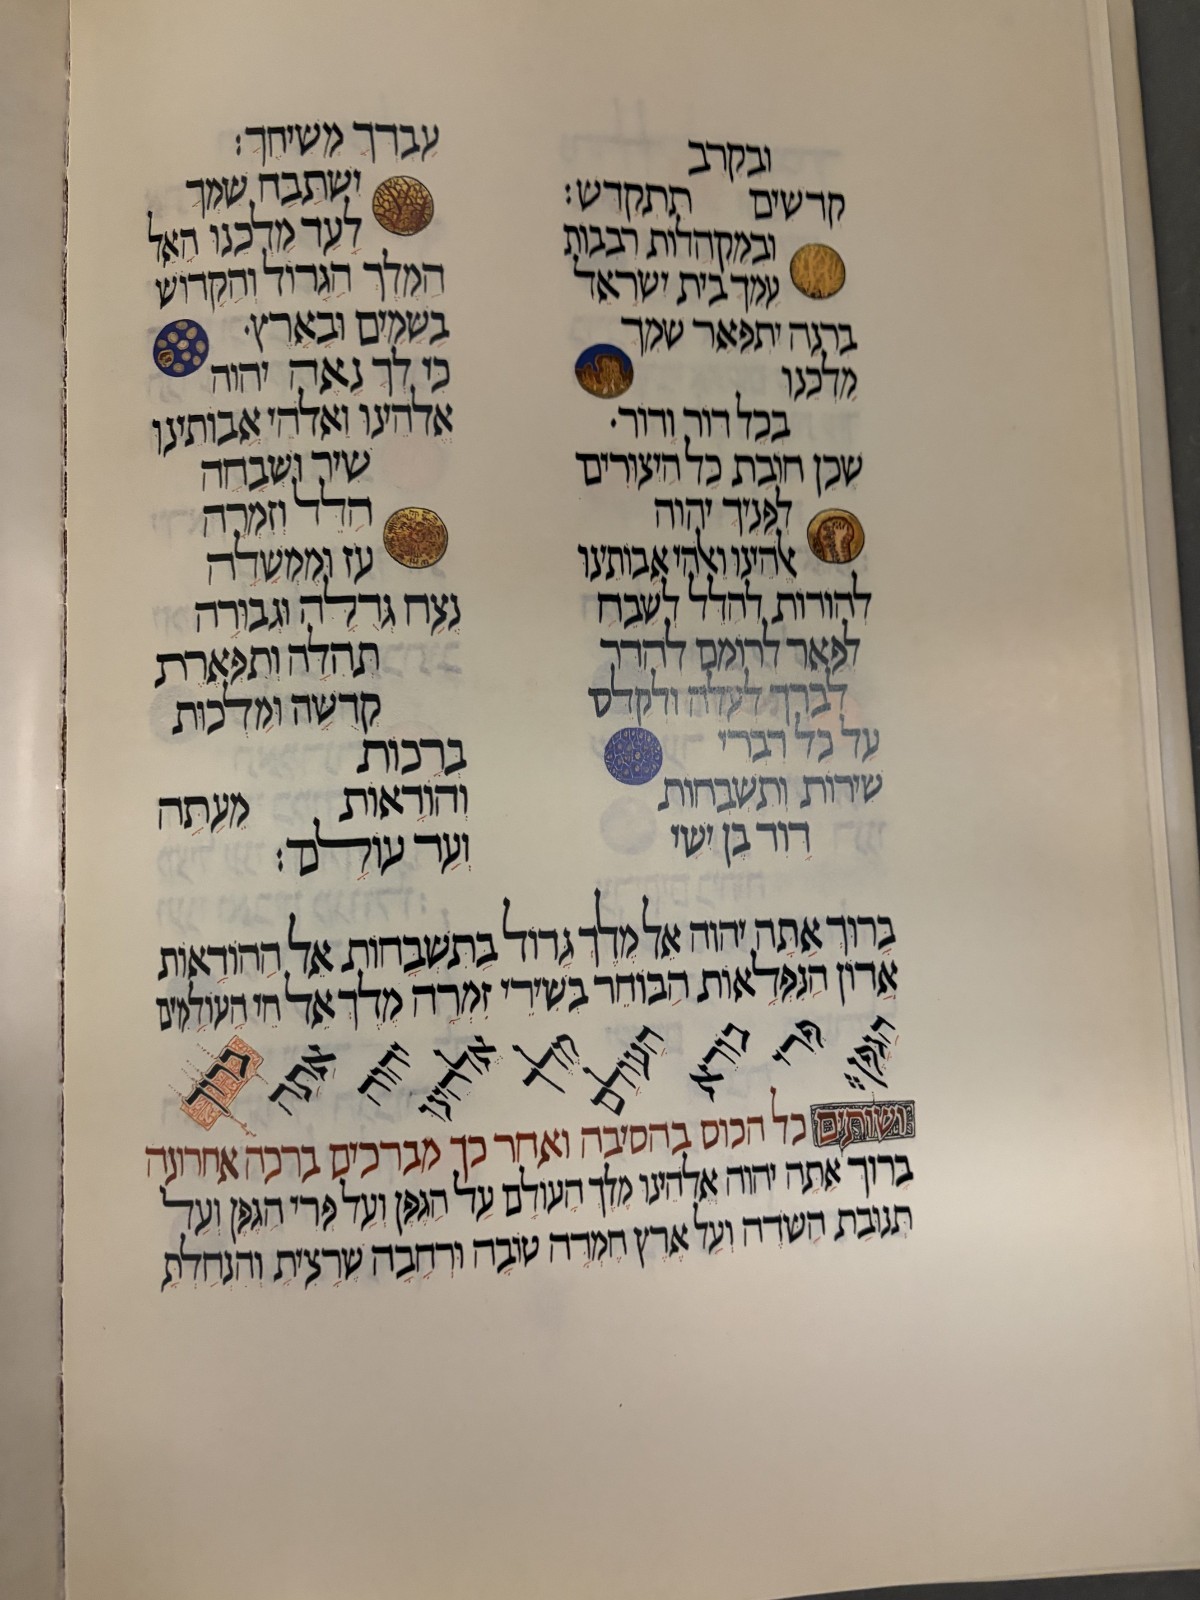 ובקרב
קדשים תתקדש:
ובמקהלות רבבות
עמך בית ישראל
ברנה יתפאר שמך
מלכנו
בכל דור ודור.
שכן חובת כל היצורים
לפניך יהוה
אלהינו ואלהי אבותינו
להודות להלל לשבח
לפאר לרומם להדר
לברך לעלה ולקלס
על כל דברי
שירות ותשבחות
דוד בן ישי
עבדך משיחך:
ישתבח שמך
לעד מלכנו האל
המלך הגדול והקדוש
בשמים ובארץ.
כי לך נאה יהוה
אלהינו ואלהי אבותינו
שיר ושבחה
הלל וזמרה
עז וממשלה
נצח גדלה וגבורה
תהלה ותפארת
קדשה ומלכות
ברכות
והודאות מעתה
ועד עולם:
ברוך אתה יהוה אל מלך גדול בתשבחות אל ההודאות
אדון הנפלאות הבוחר בשירי זמרה מלך אל חי העולמים
ברוך אתה יהוה אלהינו מלך העולם בורא פרי הגפן:
ושותים כל הכוס בהסיבה ואחר כך מברכים ברכה אחרונה
ברוך אתה יהוה אלהינו מלך העולם על הגפן ועל פרי הגפן ועל
תנובת השדה ועל ארץ חמדה טובה ורחבה שרצית והנחלת